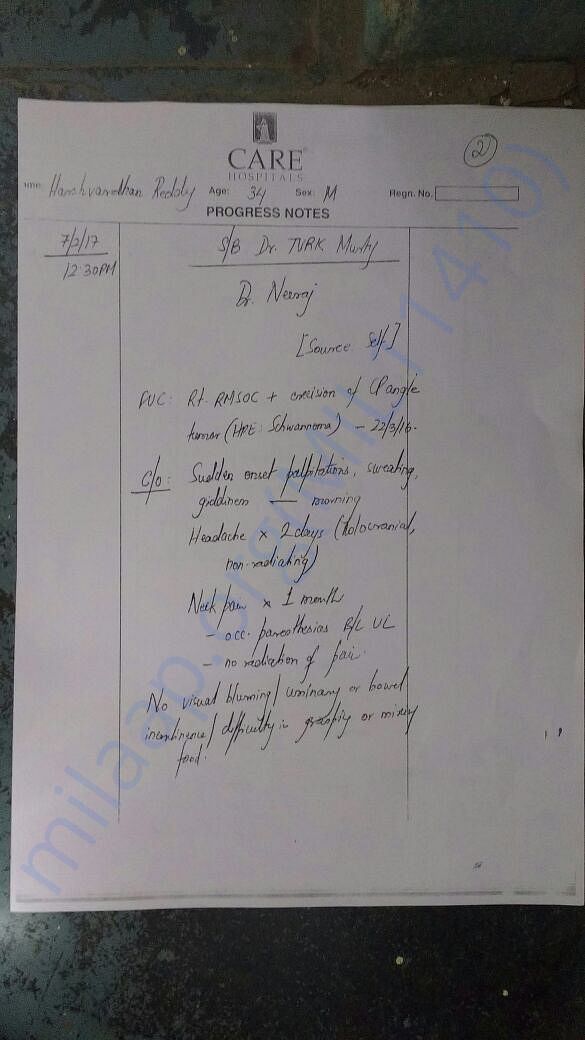 CARE
HOSPITALS
2
Name: Harshvardhan Reddy Age: 34 Sex: M Regn. No.
PROGRESS NOTES
7/2/17
12:30PM
S/B Dr. TVRK Murty
Dr. Neeraj
[Source: Self]
FUC: Rt. RMSOC + excision of CP angle
tumor (HPE: Schwannoma) – 22/3/16.
C/o: Sudden onset palpitations, sweating,
giddiness — morning
Headache × 2 days (holocranial,
non-radiating)
Neck pain × 1 month
- occ. paresthesias B/L UL
- no radiation of pain.
No visual blurring / urinary or bowel
incontinence / difficulty in grasping or mixing
food.
milaap.org(MIL11410)